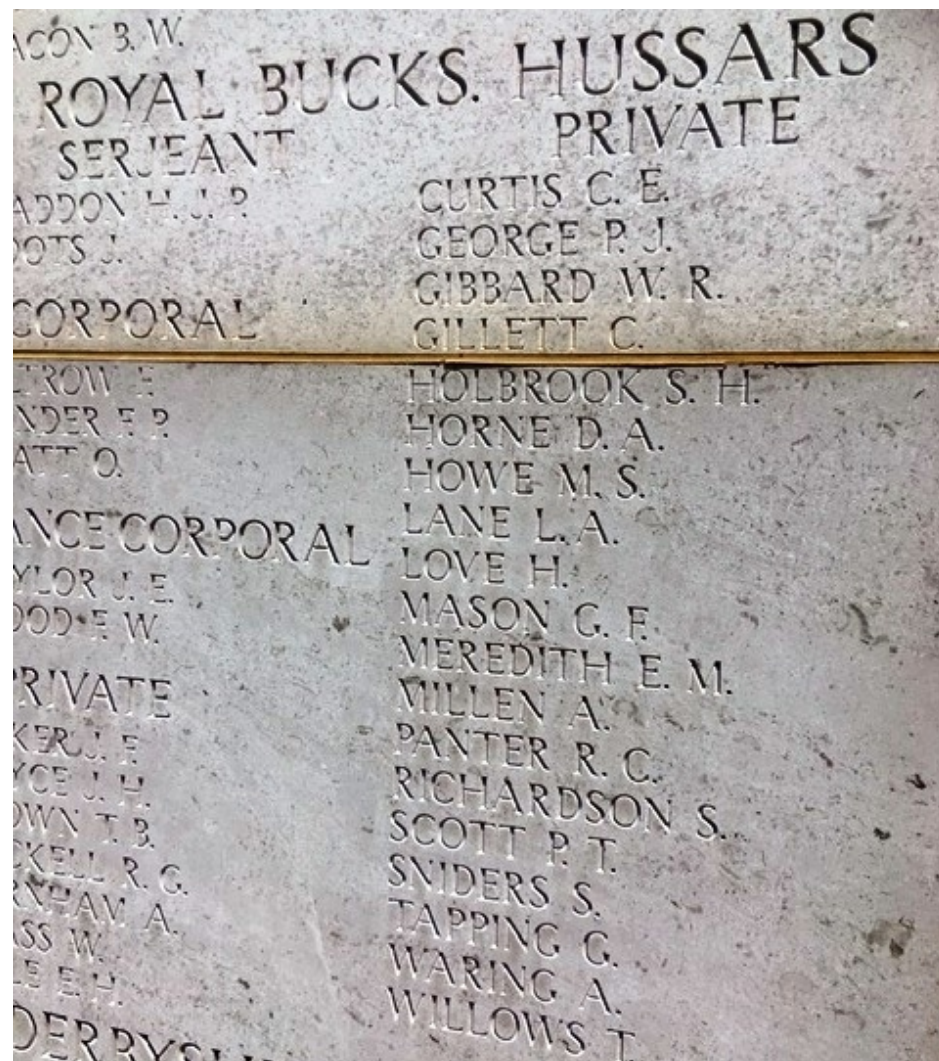 ACON B. W.
ROYAL BUCKS. HUSSARS
SERJEANT
ADDON H. J. P.
OOTS J.
CORPORAL
TROW F.
NDER F. P.
ATT O.
ANCE CORPORAL
YLOR J. E.
OOD F. W.
PRIVATE
KER J. F.
YCE J. H.
OWN T. B.
CKELL R. G.
RNHAM A.
ASS W.
LE E. H.
PRIVATE
CURTIS C. E.
GEORGE P. J.
GIBBARD W. R.
GILLETT C.
HOLBROOK S. H.
HORNE D. A.
HOWE M. S.
LANE L. A.
LOVE H.
MASON G. F.
MEREDITH E. M.
MILLEN A.
PANTER R. C.
RICHARDSON S.
SCOTT P. T.
SNIDERS S.
TAPPING G.
WARING A.
WILLOWS T.